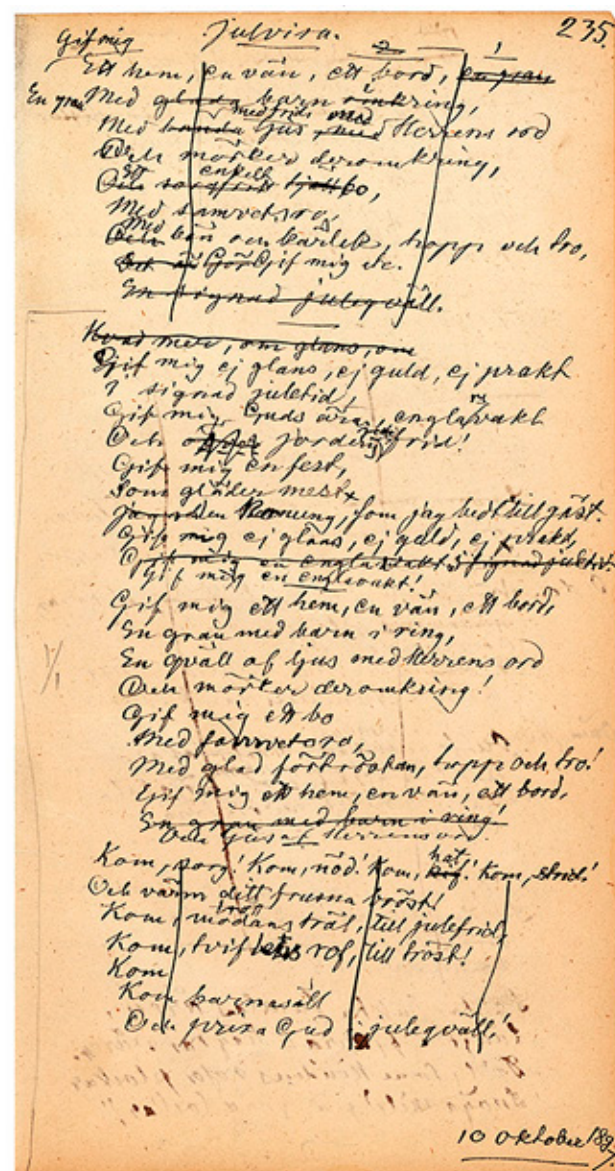 235.
Gif mig
Julvisa.
2 1
Ett hem, en vän, ett bord, en gran
En gran Med glada barn omkring,
med frids
Med tända ljus med Herrens ord
Och mörker deromkring,
Ett enkelt
bo,
Med samvetsro,
Med
Och bön och kärlek, hopp och tro,
Gif mig etc.
En signad juleqväll.
Hvad mer, om glans, om
Gif mig ej glans, ej guld, ej prakt
I signad juletid,
Gif mig Guds ära, englavakt
Och jorden frid!
Gif mig en fest,
Som gläder mest
Konung, som jag bedt till gäst.
Gif mig ej glans, ej guld, ej prakt,
Gif mig en englavakt i signad juletid.
Gif mig en englavakt!
Gif mig ett hem, en vän, ett bord,
En gran med barn i ring,
En qväll af ljus med Herrens ord
Och mörker deromkring!
Gif mig ett bo
Med samvetsro,
Med glad förtröstan, hopp och tro!
Gif mig ett hem, en vän, ett bord,
En gran med barn i ring!
Och ljus af Herrens ord.
hat,
Kom, sorg! Kom, nöd! Kom, Kom, strid!
Och värm ditt frusna bröst!
Kom, mödans träl, till julefrid,
Kom, tviflets rof, till tröst!
Kom
Kom barnasäll
Och prisa Gud i juleqväll!
10 Oktober 189